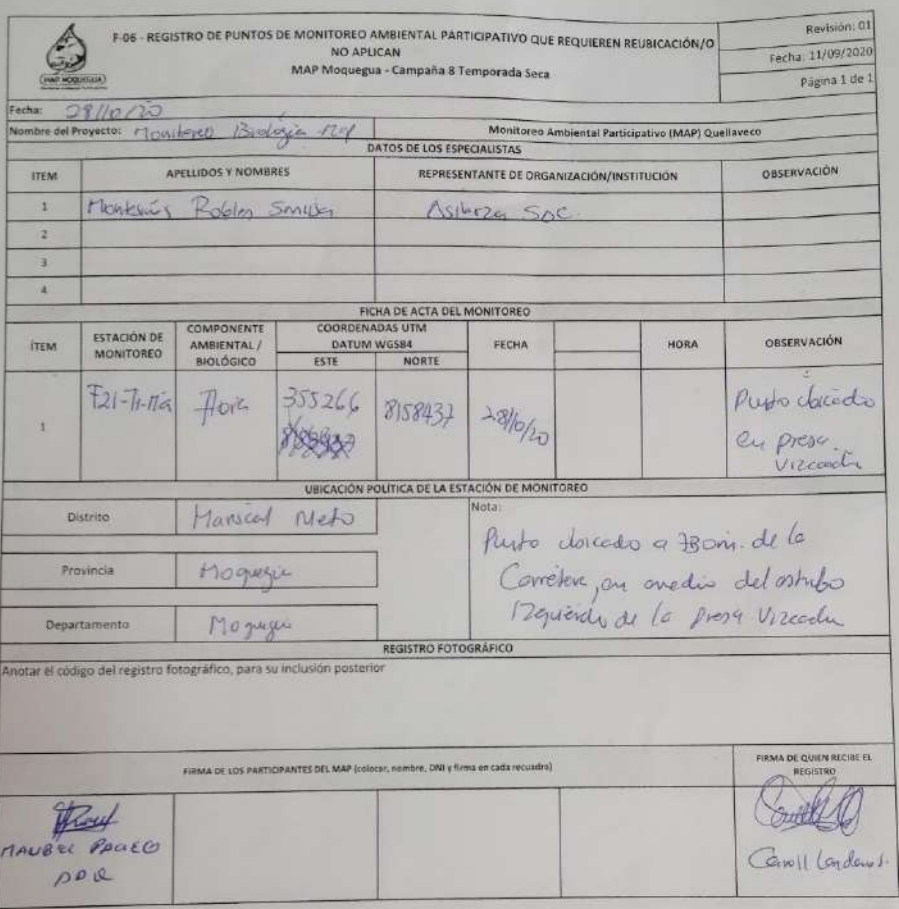 F-06 - REGISTRO DE PUNTOS DE MONITOREO AMBIENTAL PARTICIPATIVO QUE REQUIEREN REUBICACIÓN/O
NO APLICAN
MAP Moquegua - Campaña 8 Temporada Seca
Revisión: 01
Fecha: 11/09/2020
Página 1 de 1
MAP MOQUEGUA
Fecha: 28/10/20
Nombre del Proyecto: Monitoreo Biología
Monitoreo Ambiental Participativo (MAP) Quellaveco
DATOS DE LOS ESPECIALISTAS
ITEM APELLIDOS Y NOMBRES REPRESENTANTE DE ORGANIZACIÓN/INSTITUCIÓN OBSERVACIÓN
1 Robles SAC.
2
3
4
FICHA DE ACTA DEL MONITOREO
ÍTEM ESTACIÓN DE MONITOREO COMPONENTE AMBIENTAL / BIOLÓGICO COORDENADAS UTM DATUM WGS84 FECHA HORA OBSERVACIÓN
ESTE NORTE
1 Flora 355266 8158437 28/10/20 Punto ubicado
en presa
Vizcachas
UBICACIÓN POLÍTICA DE LA ESTACIÓN DE MONITOREO
Distrito Mariscal Nieto
Provincia Moquegua
Departamento Moquegua
Nota:
Punto ubicado a 730m. de la
Carretera, en medio del estribo
Izquierdo de la presa Vizcachas
REGISTRO FOTOGRÁFICO
Anotar el código del registro fotográfico, para su inclusión posterior
FIRMA DE LOS PARTICIPANTES DEL MAP (colocar, nombre, DNI y firma en cada recuadro)
FIRMA DE QUIEN RECIBE EL
REGISTRO